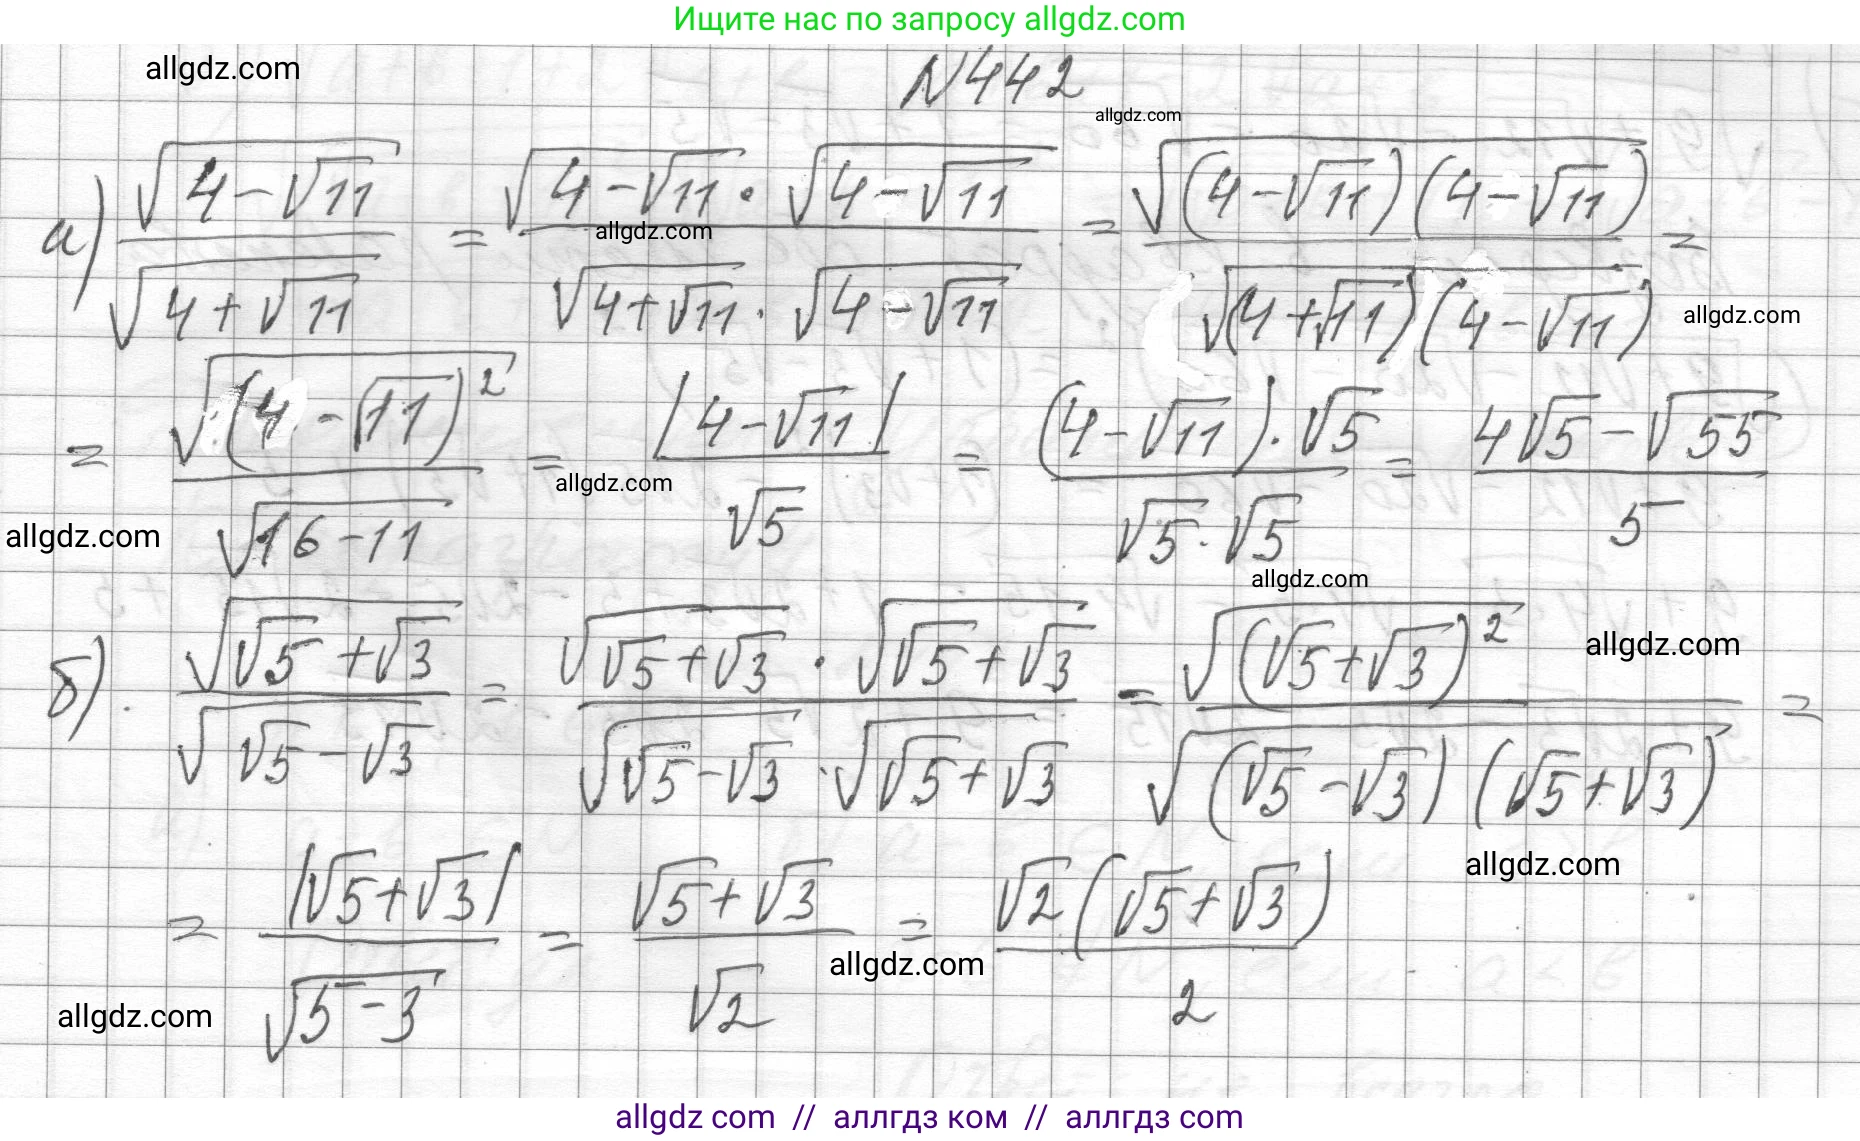 Ищите нас по запросу allgdz.com
allgdz.com
N442
allgdz.com
а) √(4-√11) / √(4+√11) = √(4-√11) · √(4-√11) / √(4+√11) · √(4-√11) = √((4-√11)(4-√11)) / √((4+√11)(4-√11)) =
allgdz.com
allgdz.com
= √((4-√11)²) / √(16-11) = |4-√11| / √5 = (4-√11)·√5 / √5·√5 = 4√5-√55 / 5
allgdz.com
allgdz.com
allgdz.com
б). √(√5+√3) / √(√5-√3) = √(√5+√3) · √(√5+√3) / √(√5-√3) · √(√5+√3) = √((√5+√3)²) / √((√5-√3)(√5+√3)) =
allgdz.com
allgdz.com
= |√5+√3| / √(5-3) = √5+√3 / √2 = √2(√5+√3) / 2
allgdz.com
allgdz.com
allgdz com // аллгдз ком // аллгдз com